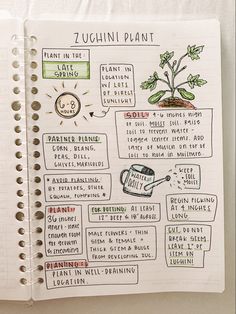 ZUCHINI PLANT
PLANT IN THE
LATE
SPRING
PLANT IN
LOCATION
W/ LOTS
OF DIRECT
SUNLIGHT
6-8
HOURS
SOIL:
6 INCHES
OF SOIL. MOIST SOIL. RAISE
SOIL TO PREVENT WATER-
LOGGED
ADD
LAYER OF MULCH ON TOP OF
SOIL TO HOLD IN MOISTURE
PARTNER PLANTS:
CORN, BEANS,
PEAS, DILL,
CHIVES, MARIGOLDS
AVOID PLANTING
BY POTATOES, OTHER
SQUASH, PUMPKINS
WATER
DAILY
KEEP
SOIL
MOIST
PLANT
36 INCHES
AWAY
LEAVE
ENOUGH ROOM
FOR GROWTH
& SPREADING
FOR POTTING: AT LEAST
12" DEEP & 18" ACROSS.
BEGIN PICKING
AT 4 INCHES
LONG.
MALE FLOWERS - THIN
STEM & FEMALE =
THICK STEM & BULGE
FROM DEVELOPING ZUC.
CUT, DO NOT
BREAK STEM.
LEAVE 1" OF
STEM ON
ZUCHINI!
PLANTING:
PLANT IN WELL-DRAINING
LOCATION.